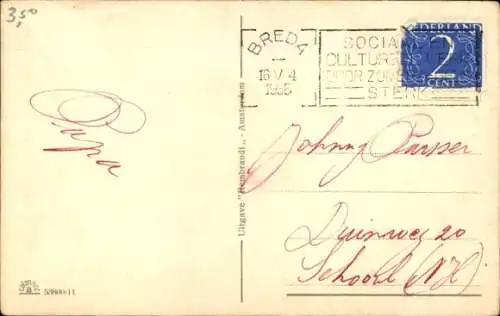 3,50
BREDA
16 V 4
1955
SOCIAAL EN
CULTUREEL
DOOR ZOMERZEGELS
STERK
NEDERLAND
2
CENT
Papa
Uitgave "Rembrandt" - Amsterdam
Johnny
Duinweg 20
Schoorl (N.H.)
53800-11